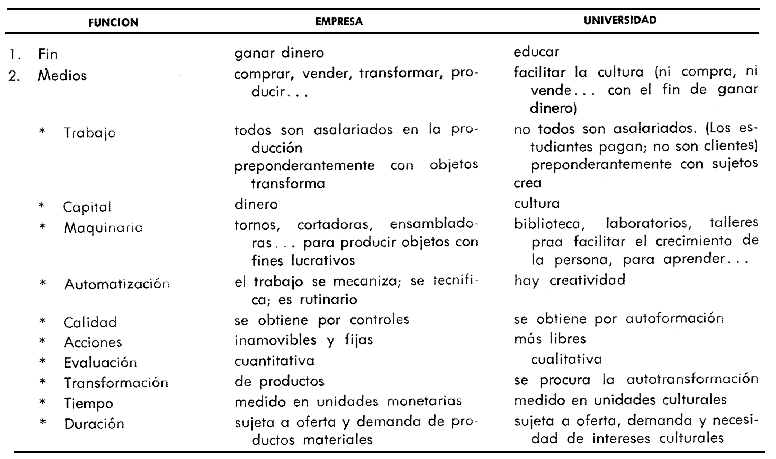 FUNCION EMPRESA UNIVERSIDAD
1. Fin ganar dinero educar
2. Medios comprar, vender, transformar, pro- facilitar la cultura (ni compra, ni
ducir... vende... con el fin de ganar
dinero)
* Trabajo todos son asalariados en la pro- no todos son asalariados. (Los es-
ducción tudiantes pagan; no son clientes)
preponderantemente con objetos preponderantemente con sujetos
transforma crea
* Capital dinero cultura
* Maquinaria tornos, cortadoras, ensamblado- biblioteca, laboratorios, talleres
ras... para producir objetos con praa facilitar el crecimiento de
fines lucrativos la persona, para aprender...
* Automatización el trabajo se mecaniza; se tecnifi- hay creatividad
ca; es rutinario
* Calidad se obtiene por controles se obtiene por autoformación
* Acciones inamovibles y fijas más libres
* Evaluación cuantitativa cualitativa
* Transformación de productos se procura la autotransformación
* Tiempo medido en unidades monetarias medido en unidades culturales
* Duración sujeta a oferta y demanda de pro- sujeta a oferta, demanda y necesi-
ductos materiales dad de intereses culturales